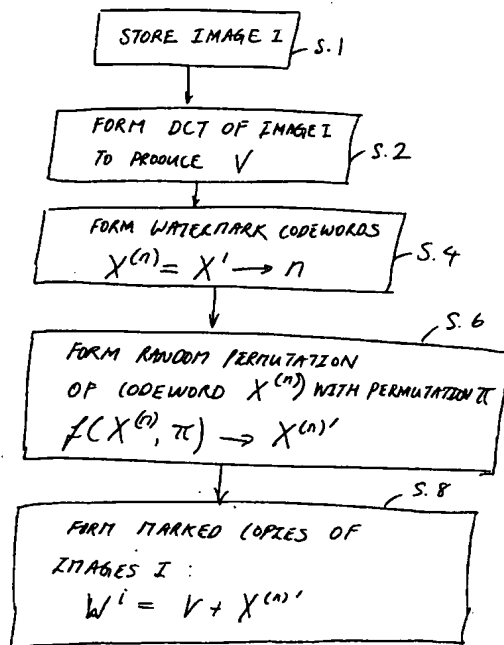 STORE IMAGE I
S.1
FORM DCT OF IMAGE I
TO PRODUCE V
S.2
FORM WATERMARK CODEWORDS
X^(n) = X' → n
S.4
S.6
FORM RANDOM PERMUTATION
OF CODEWORD X^(n) WITH PERMUTATION π
f(X^(n), π) → X^(n)'
S.8
FORM MARKED COPIES OF
IMAGES I :
W^i = V + X^(n)'